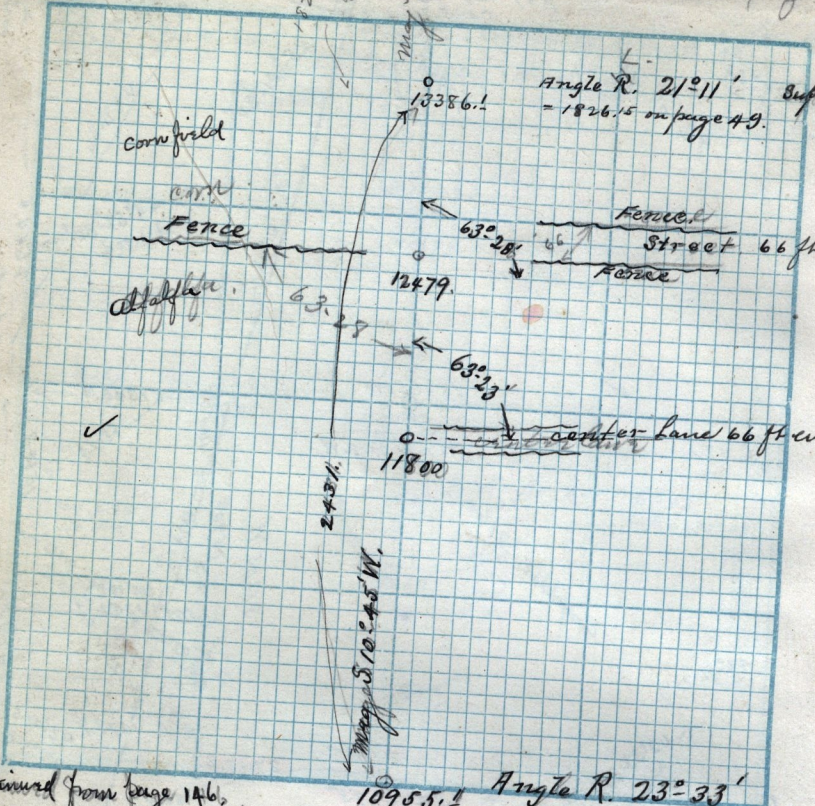 Angle R. 21°11'
L.
13386.1
= 1826.15 on page 49.
cornfield
corn
Fence
Fence
63°28'
66
Street 66 ft
12479.
Fence
Alfalfa
63-28
63°23'
center Lane 66 ft
11800
2431.
Mag S 10°45' W.
from page 146.
10955.1
Angle R. 23°33'